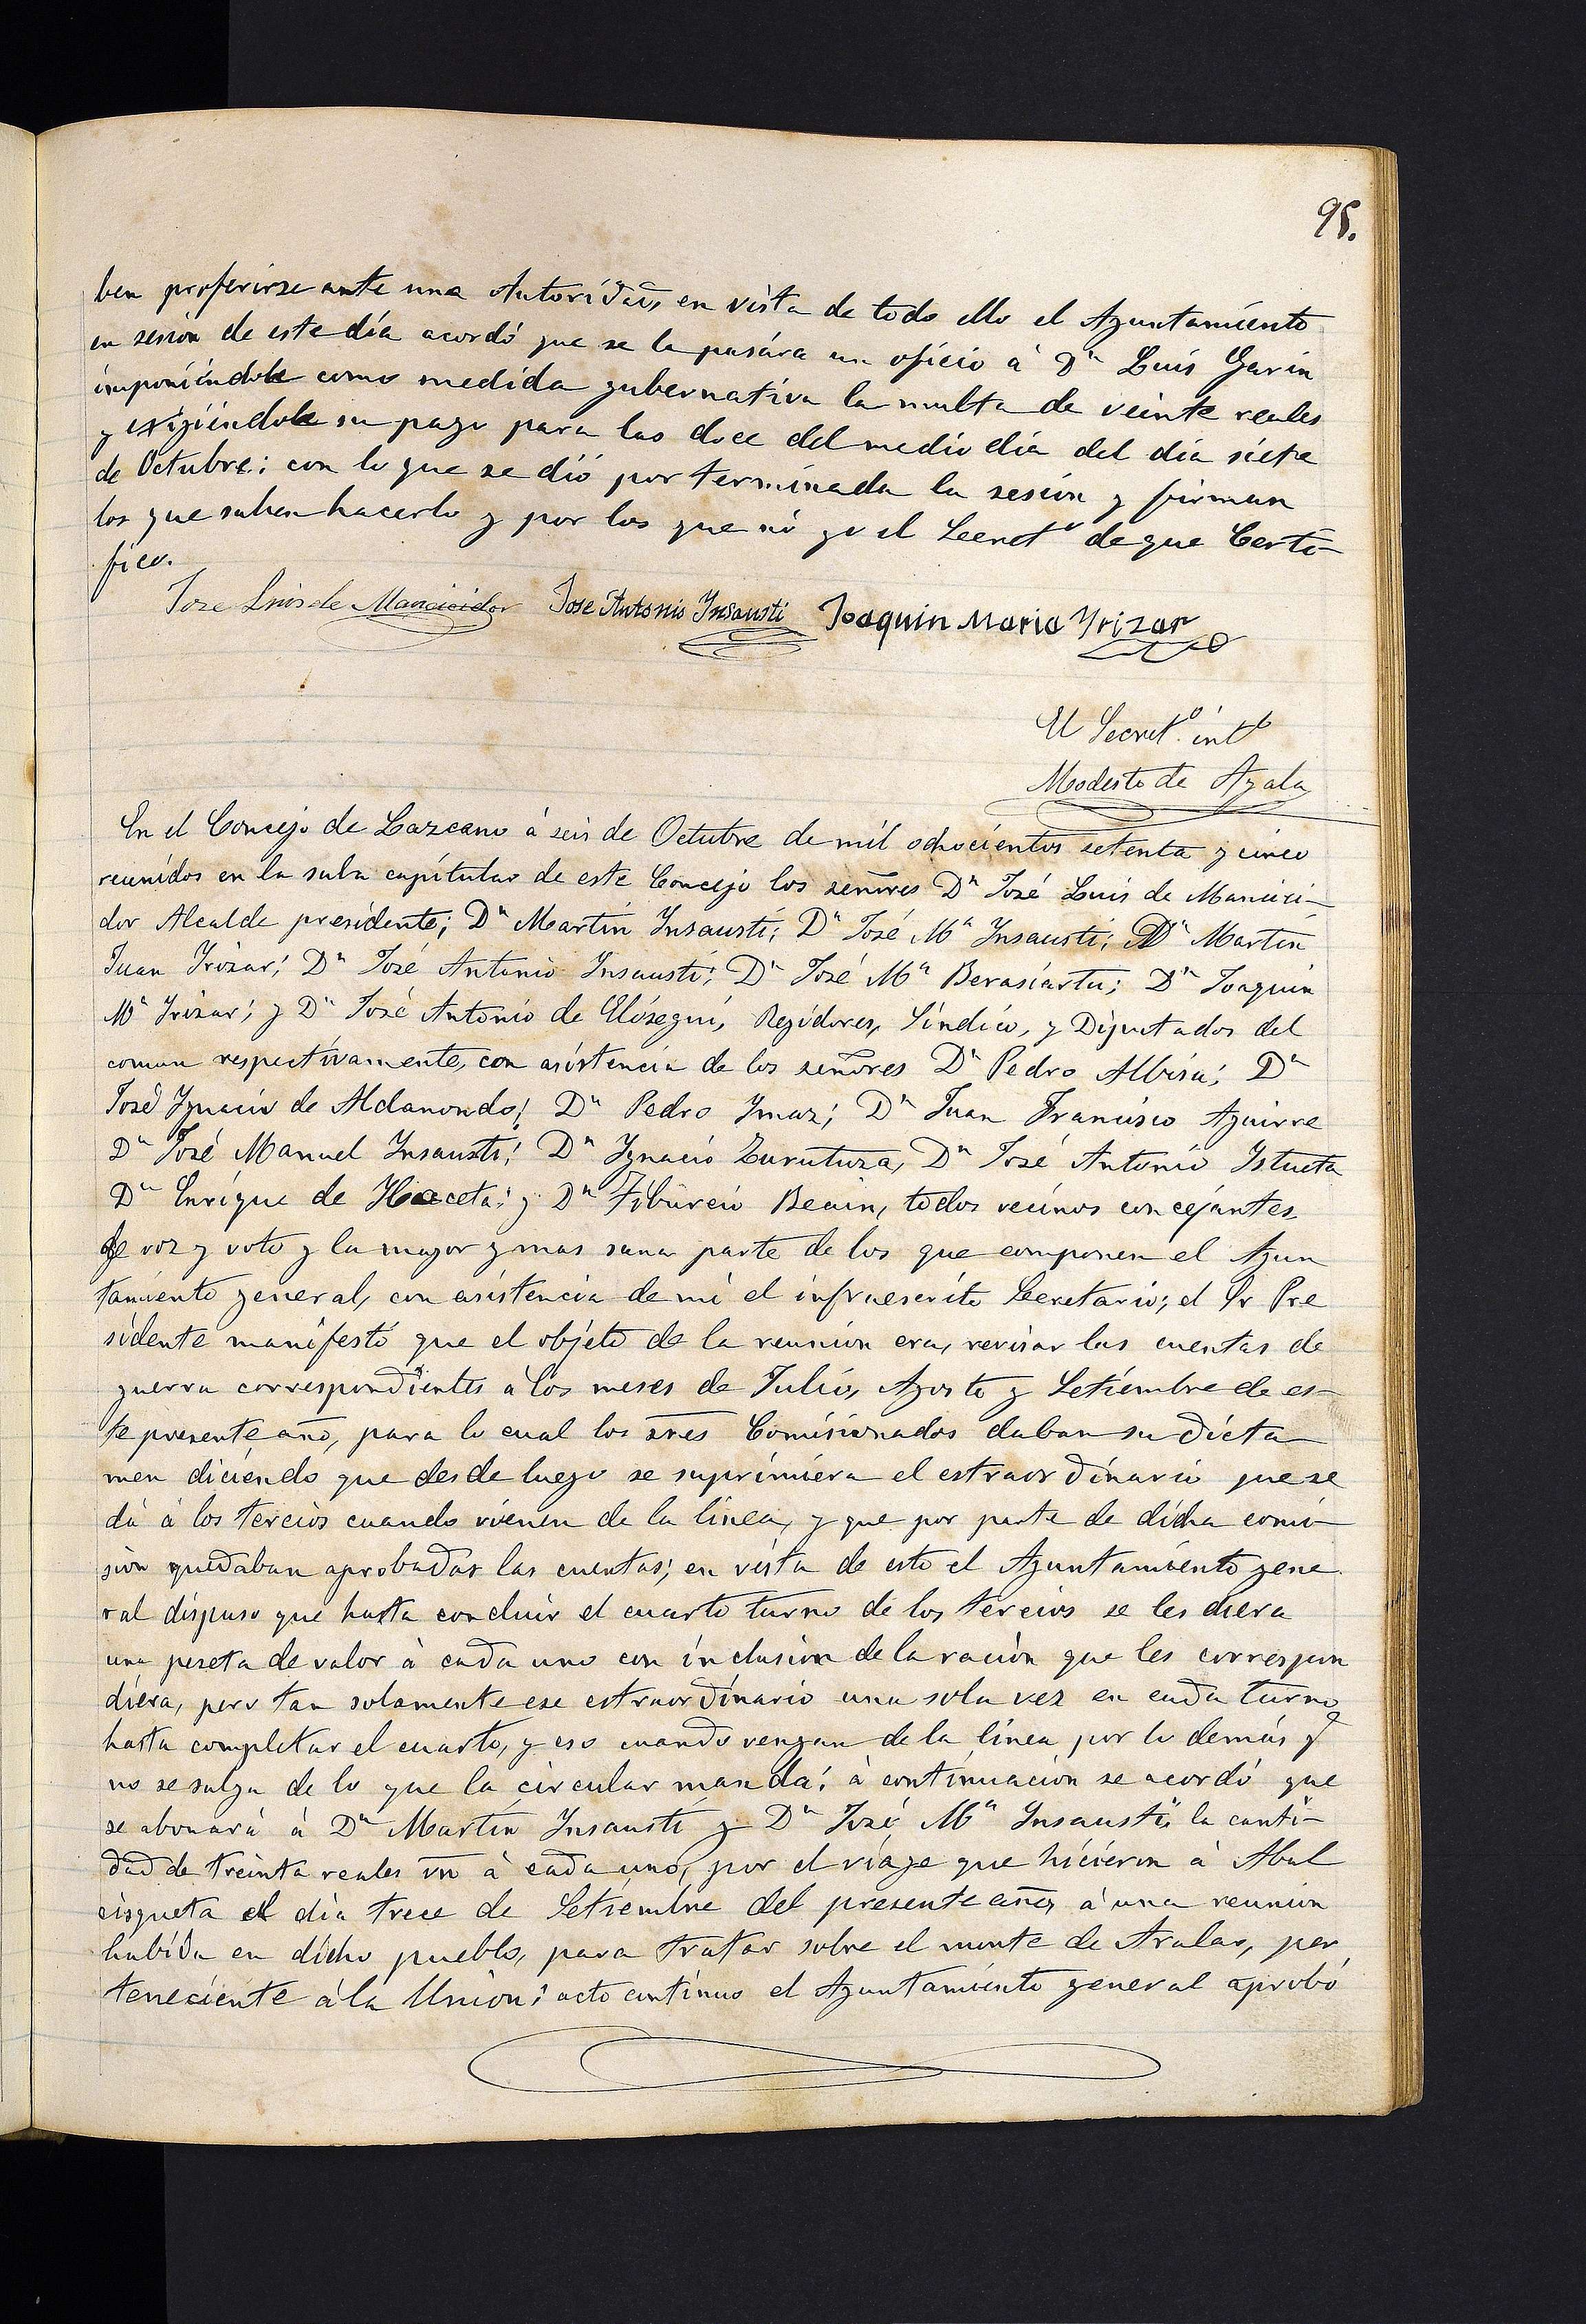 95.
ben proferirse ante una Autoridad, en vista de todo ello el Ayuntamiento
en sesión de este día acordó que se le pasára un oficio á Dn Luis Garin
imponiéndole como medida gubernativa la multa de veinte reales
y exigiéndole su pago para las doce del medio dia del día siete
de Octubre: con lo que se dió por terminada la sesión y firman
los que saben hacerlo y por los que nó yo el Secreto de que Certi-
fico.
Jose Luis de Mancicidor Jose Antonio Ynsausti Joaquin Maria Yrizar
El Secreto. into
Modesto de Ayala
En el Concejo de Lazcano á seis de Octubre de mil ochocientos setenta y cinco
reunidos en la sala capitular de este Concejo los señores Dn José Luis de Mancici-
dor Alcalde presidente; Dn Martin Ynsausti; Dn José Ma Ynsausti; Dn Martin
Juan Yrizar; Dn José Antonio Ynsausti; Dn José Ma Berasiartu; Dn Joaquin
Ma Yrizar; y Dn José Antonio de Elósegui, Regidores, Síndico, y Diputados del
comun respectivamente, con asistencia de los señores Dn Pedro Albisu; Dn
José Ygnacio de Aldanondo; Dn Pedro Ymaz; Dn Juan Francisco Aguirre
Dn José Manuel Ynsausti; Dn Ygnacio Zurutuza, Dn José Antonio Istueta
Dn Enrique de Ytaceta; y Dn Tiburcio Beain, todos vecinos concejantes
de voz y voto y la mayor y mas sana parte de los que componen el Ayun
tamiento general, con asistencia de mi el infraescrito Secretario; el Sr Pre
sidente manifestó que el objeto de la reunion era, revisar las cuentas de
guerra correspondientes á los meses de Julio, Agosto y Setiembre de es-
te presente año, para lo cual los sres Comisionados daban su dicta
men diciendo que desde luego se suprimiera el estraordinario que se
dá á los tercios cuando vienen de la linea, y que por parte de dicha comi-
sion quedaban aprobadas las cuentas; en vista de esto el Ayuntamiento gene
ral dispuso que hasta concluir el cuarto turno de los tercios se les diera
una peseta de valor á cada uno con inclusion de la ración que les correspon
diera, pero tan solamente ese estraordinario una sola vez en cada turno
hasta completar el cuarto, y eso cuando vengan de la linea por lo demás q
no se salga de lo que la circular manda: á continuación se acordó que
se abonará á Dn Martin Ynsausti y Dn José Ma Ynsausti la canti-
dad de treinta reales vn á cada uno, por el viage que hicieron á Abal
cisqueta el dia trece de Setiembre del presente año, á una reunion
habida en dicho pueblo, para tratar sobre el monte de Aralar, per
teneciente á la Union: acto continuo el Ayuntamiento general aprobó